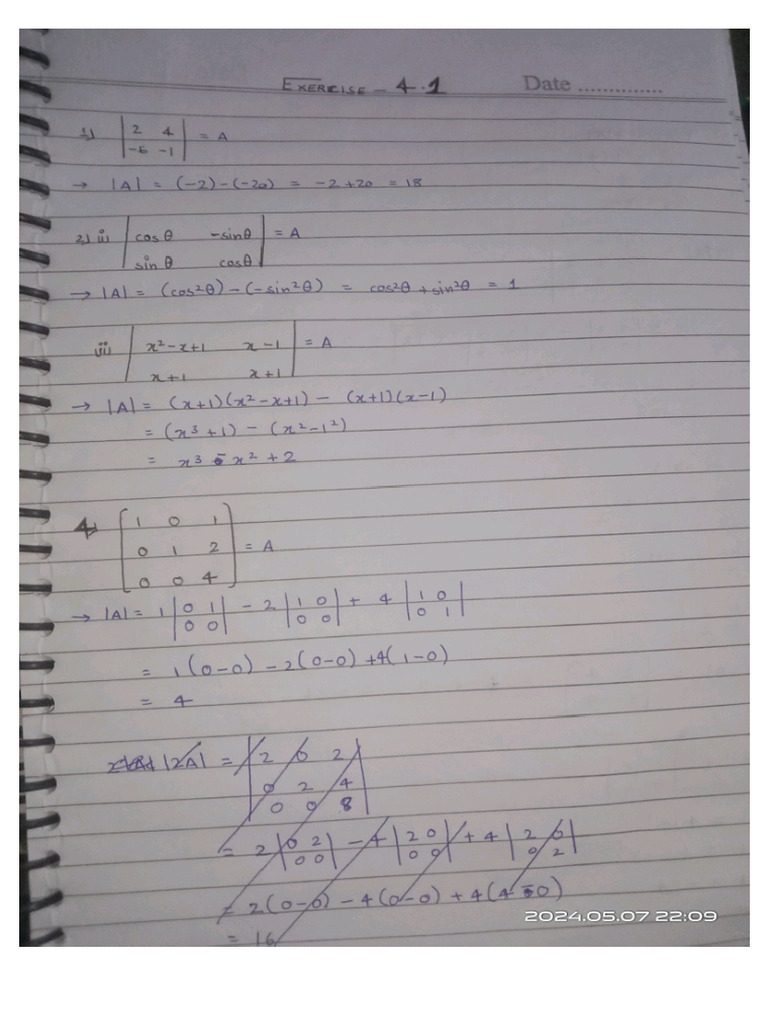 EXERCISE - 4.1 Date ..............
1) | 2 4 | = A
| -5 -1 |
→ |A| = (-2) - (-20) = -2 + 20 = 18
2) i) | cosθ -sinθ | = A
| sinθ cosθ |
→ |A| = (cos²θ) - (-sin²θ) = cos²θ + sin²θ = 1
ii) | x² - x + 1 x - 1 | = A
| x + 1 x + 1 |
→ |A| = (x+1)(x² - x + 1) - (x+1)(x-1)
= (x³ + 1) - (x² - 1²)
= x³ - x² + 2
4) [ 1 0 1 ]
[ 0 1 2 ] = A
[ 0 0 4 ]
→ |A| = 1 | 0 1 | - 2 | 1 0 | + 4 | 1 0 |
| 0 0 | | 0 0 | | 0 1 |
= 1(0-0) - 2(0-0) + 4(1-0)
= 4
|2A| = | 2 0 2 |
| 0 2 4 |
| 0 0 8 |
= 2 | 0 2 | - 4 | 2 0 | + 4 | 2 0 |
| 0 0 | | 0 0 | | 0 2 |
= 2(0-0) - 4(0-0) + 4(4-0)
= 16
2024.05.07 22:09